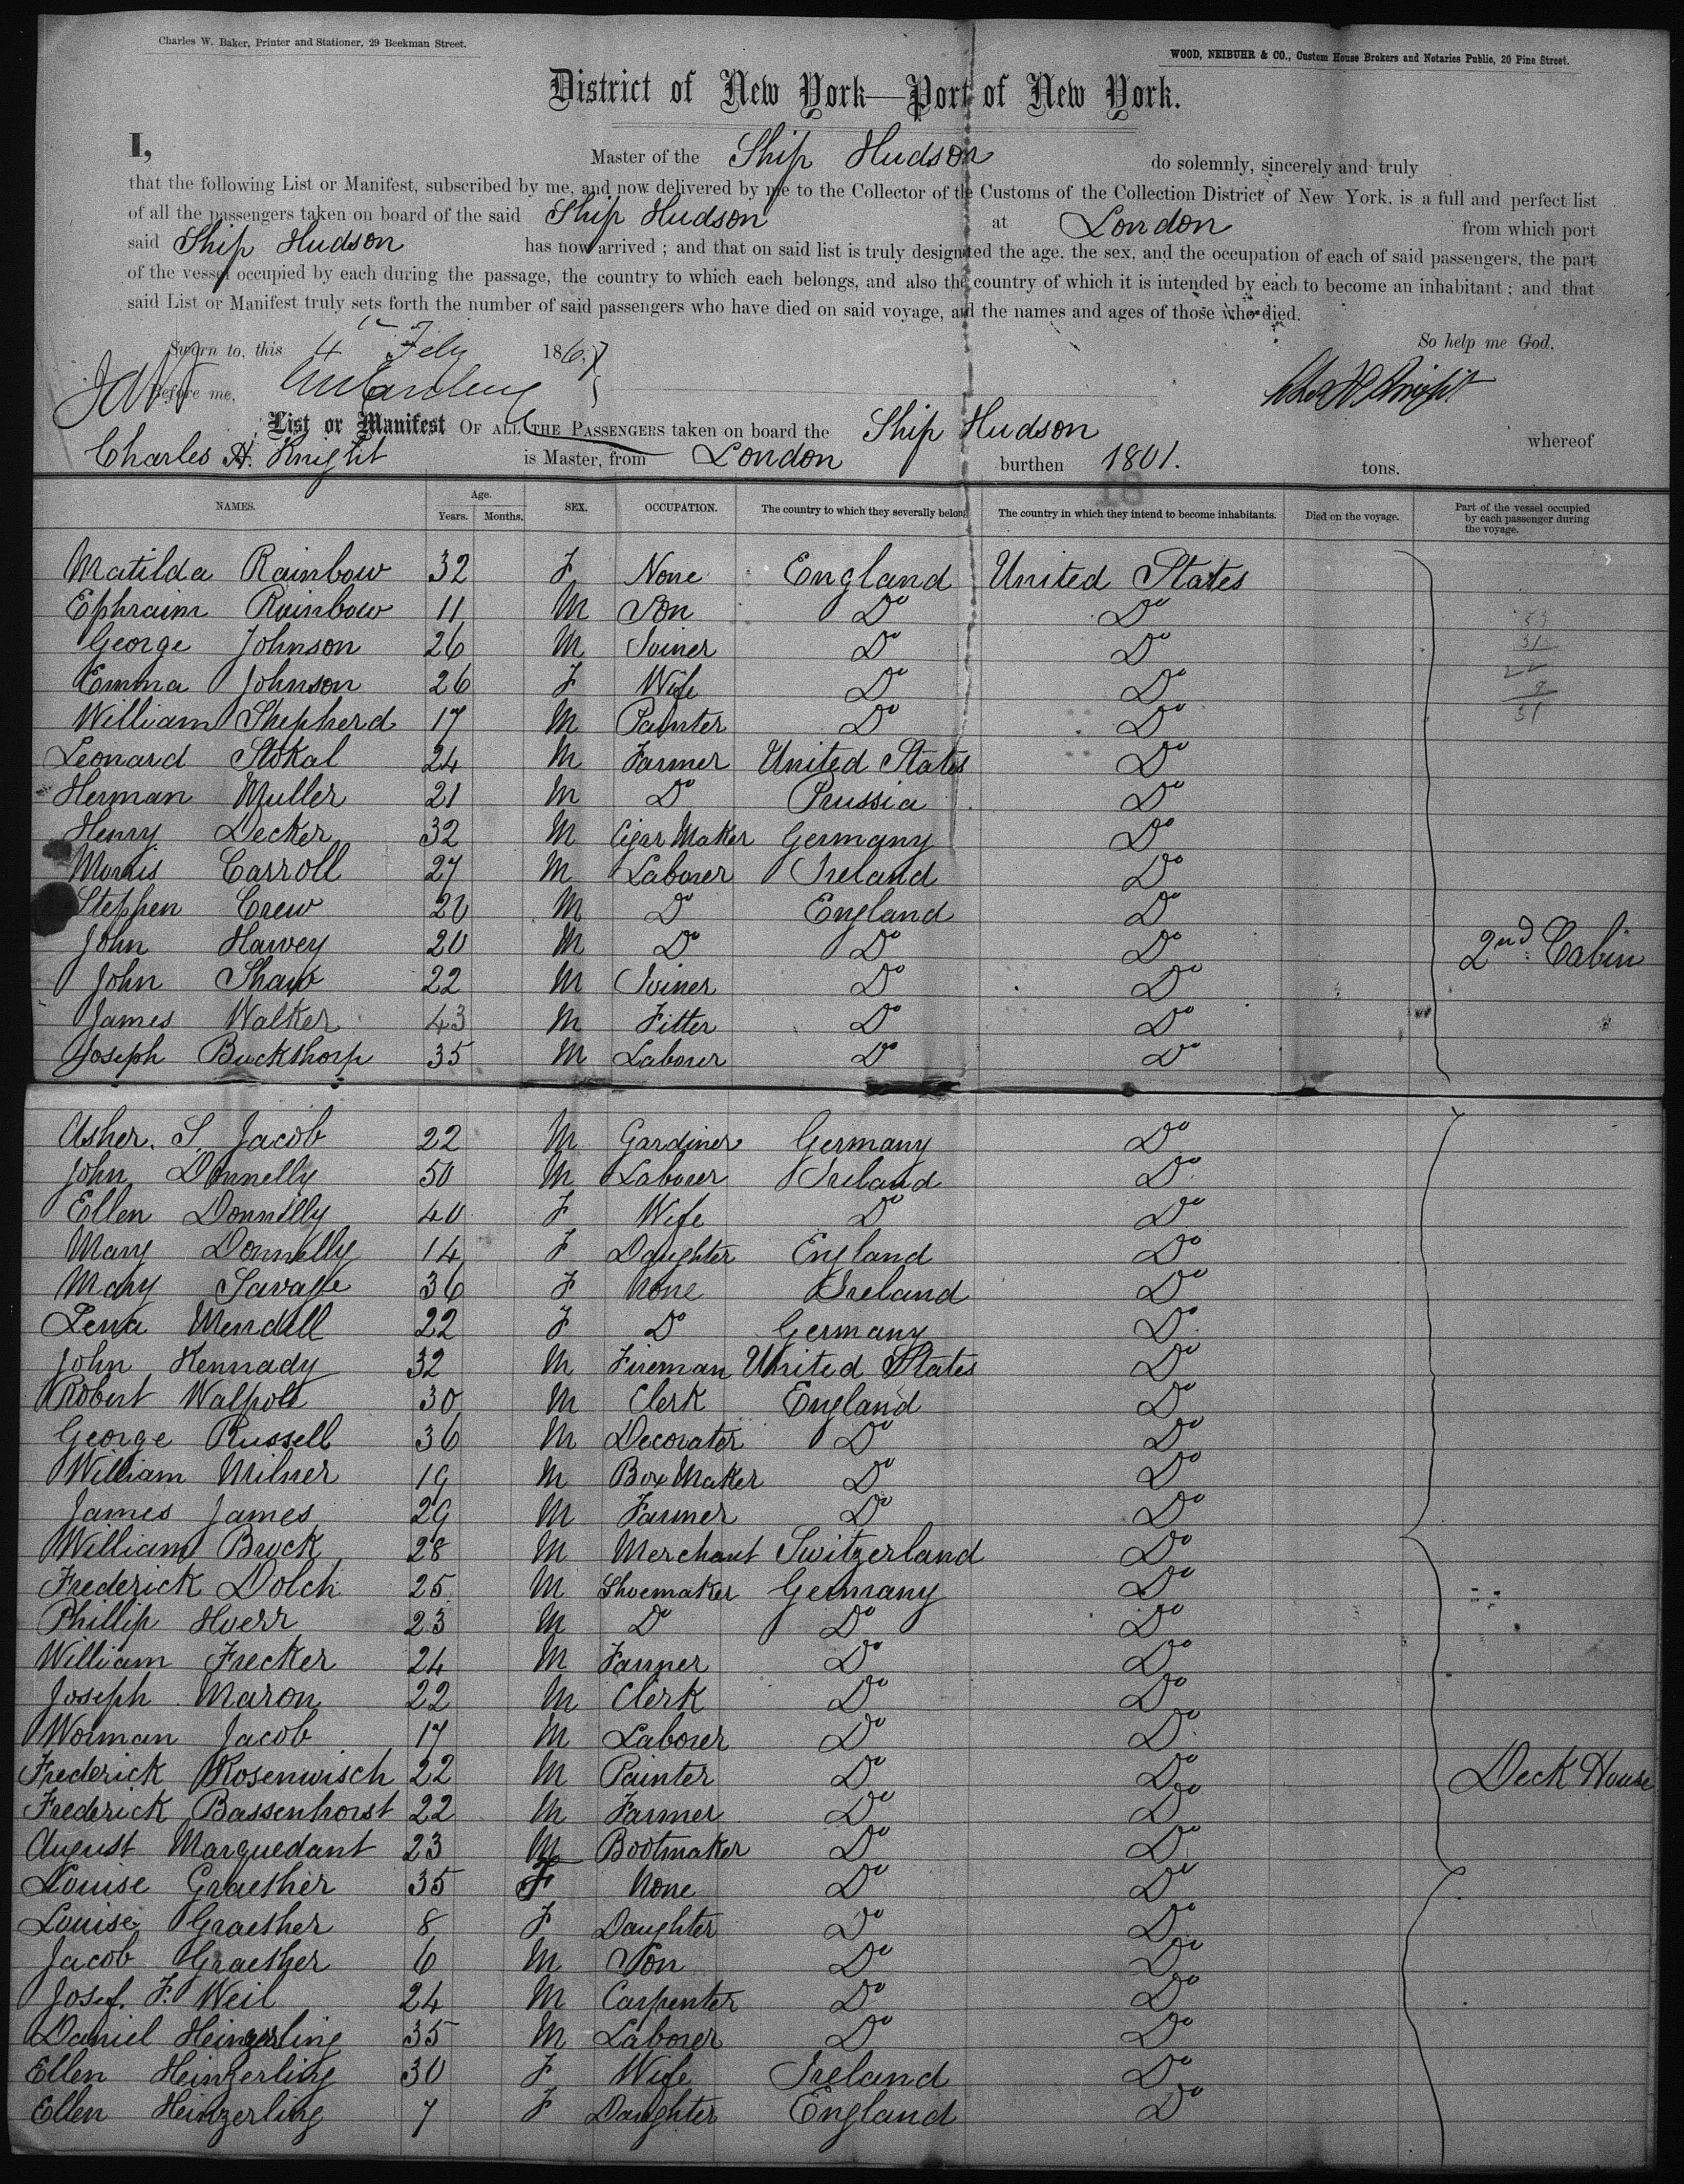 Charles W. Baker, Printer and Stationer, 29 Beekman Street.
WOOD, NEIBUHR & CO., Custom House Brokers and Notaries Public, 20 Pine Street.
District of New York—Port of New York.
I, Master of the Ship Hudson do solemnly, sincerely and truly
that the following List or Manifest, subscribed by me, and now delivered by me to the Collector of the Customs of the Collection District of New York. is a full and perfect list
of all the passengers taken on board of the said Ship Hudson at London from which port
said Ship Hudson has now arrived ; and that on said list is truly designated the age, the sex, and the occupation of each of said passengers, the part
of the vessel occupied by each during the passage, the country to which each belongs, and also the country of which it is intended by each to become an inhabitant ; and that
said List or Manifest truly sets forth the number of said passengers who have died on said voyage, and the names and ages of those who died.
Sworn to, this 4 Feby 1867 So help me God.
Before me, Chas H Knight
List or Manifest OF ALL THE PASSENGERS taken on board the Ship Hudson whereof
Charles H. Knight is Master, from London burthen 1801. tons.
18
NAMES. Age. Years. Months. SEX. OCCUPATION. The country to which they severally belong The country in which they intend to become inhabitants. Died on the voyage. Part of the vessel occupied by each passenger during the voyage.
Matilda Rainbow 32 F None England United States
Ephraim Rainbow 11 M Son Do Do
George Johnson 26 M Joiner Do Do
Emma Johnson 26 F Wife Do Do
William Shepherd 17 M Painter Do Do
Leonard Stokal 24 M Farmer United States Do
Herman Muller 21 M Do Prussia Do
Henry Decker 32 M Cigar Maker Germany Do
Morris Carroll 27 M Laborer Ireland Do
Stephen Crew 20 M Do England Do
John Harvey 20 M Do Do Do 2nd Cabin
John Shaw 22 M Joiner Do Do
James Walker 43 M Fitter Do Do
Joseph Buckthorp 35 M Laborer Do Do
Asher. S. Jacob 22 M Gardiner Germany Do
John Donnelly 50 M Laborer Ireland Do
Ellen Donnelly 40 F Wife Do Do
Mary Donnelly 14 F Daughter England Do
Mary Savage 36 F None Ireland Do
Lena Mendell 22 F Do Germany Do
John Kennady 32 M Fireman United States Do
Robert Walpole 30 M Clerk England Do
George Russell 36 M Decorater Do Do
William Milner 19 M Box Maker Do Do
James James 29 M Farmer Do Do
William Bruck 28 M Merchant Switzerland Do
Frederick Dolch 25 M Shoemaker Germany Do
Phillip Hoerr 23 M Do Do Do
William Frecker 24 M Farmer Do Do
Joseph Maron 22 M Clerk Do Do
Worman Jacob 17 M Laborer Do Do
Frederick Rosenwisch 22 M Painter Do Do Deck House
Frederick Bassenhorst 22 M Farmer Do Do
August Marquedant 23 M Bootmaker Do Do
Louise Graesher 35 F None Do Do
Louise Graesher 8 F Daughter Do Do
Jacob Graesher 6 M Son Do Do
Josef. F. Weil 24 M Carpenter Do Do
Daniel Heinzerling 35 M Laborer Do Do
Ellen Heinzerling 30 F Wife Ireland Do
Ellen Heinzerling 7 F Daughter England Do